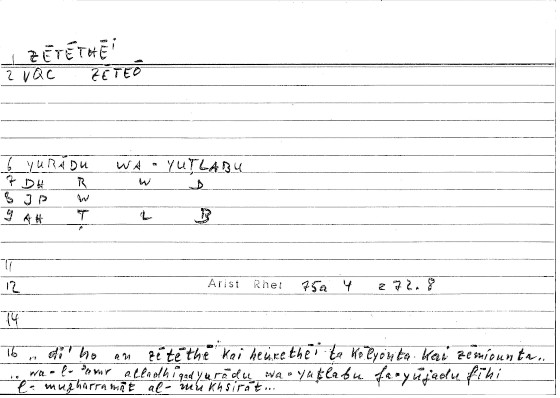 1 ZĒTĒTHĒI
2 VQC ZĒTEŌ
6 YURĀDU WA-YUṬLABU
7 DH R W D
8 IP W
9 AH Ṭ L B
11
12 Arist Rhet 75a 4 272.8
14
16 .. di' ho an zētēthēi kai heurethēi ta kōlyonta kai zēmiounta..
.. wa-l-'amr alladhi qad yurādu wa-yuṭlabu fa-yūjadu fīhi
l-mugharramāt al-mukhsirāt...